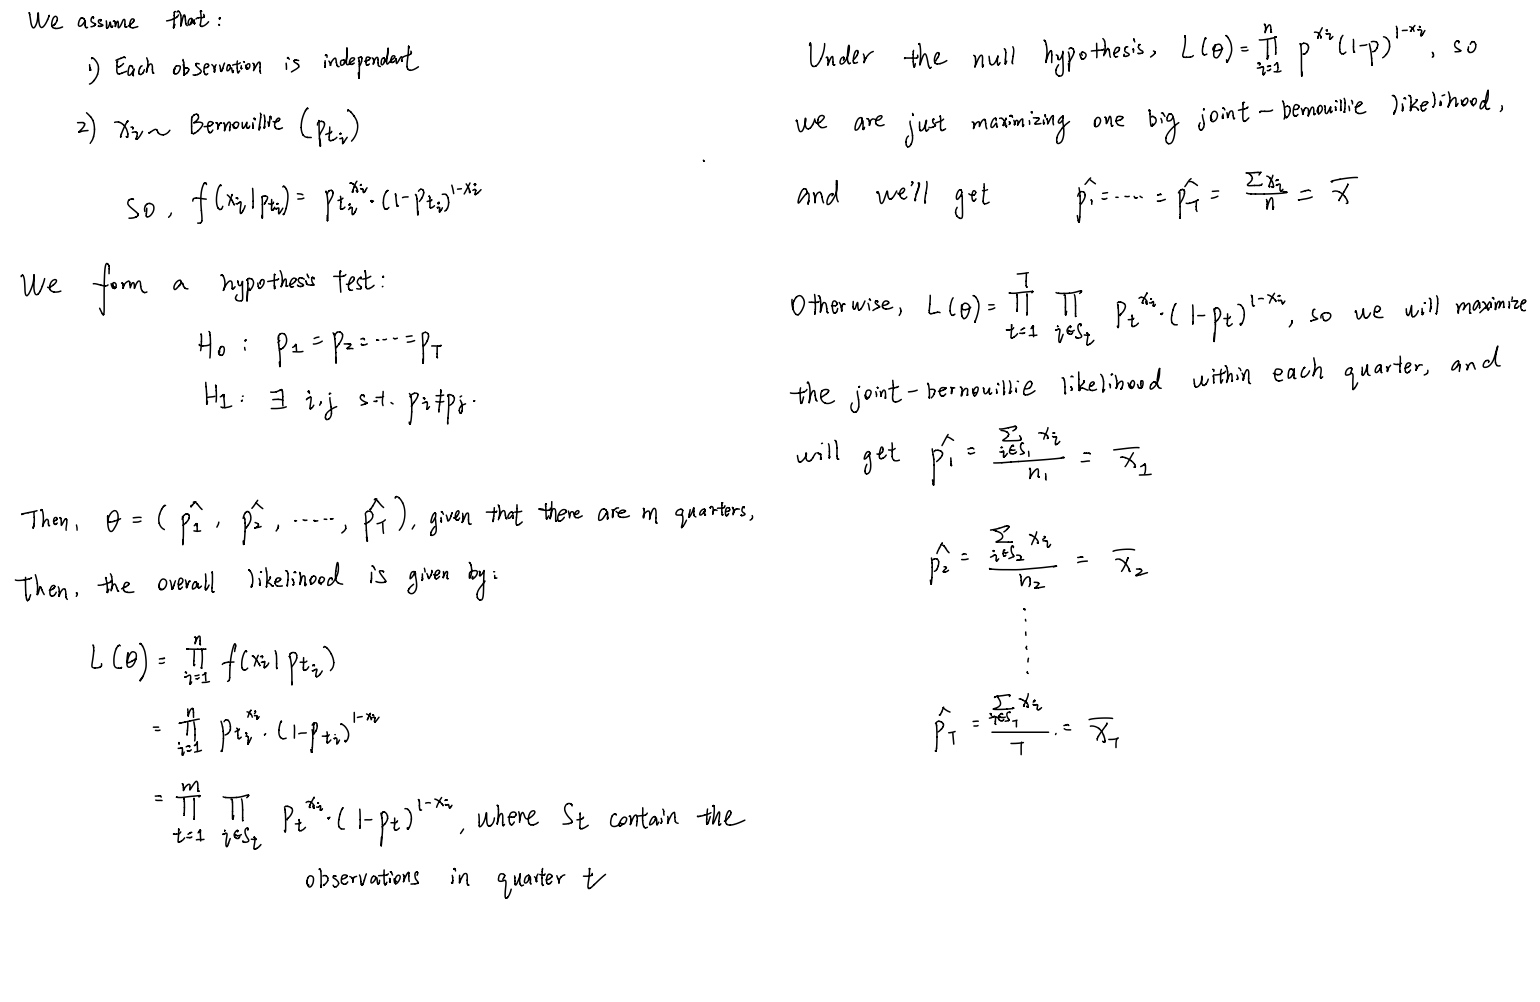 We assume that:
1) Each observation is independent
2) xᵢ ~ Bernouillie (p_{tᵢ})
so, f(xᵢ|p_{tᵢ}) = p_{tᵢ}^{xᵢ}·(1-p_{tᵢ})^{1-xᵢ}
We form a hypothesis test:
H₀: p₁=p₂=....=p_T
H₁: ∃ i,j s.t. pᵢ≠pⱼ.
Then, θ = (p̂₁, p̂₂, ....., p̂_T), given that there are m quarters,
Then, the overall likelihood is given by:
L(θ) = ∏_{i=1}^{n} f(xᵢ|p_{tᵢ})
= ∏_{i=1}^{n} p_{tᵢ}^{xᵢ}·(1-p_{tᵢ})^{1-xᵢ}
= ∏_{t=1}^{m} ∏_{i∈S_t} p_t^{xᵢ}·(1-p_t)^{1-xᵢ}, where S_t contain the
observations in quarter t
Under the null hypothesis, L(θ) = ∏_{i=1}^{n} p^{xᵢ}(1-p)^{1-xᵢ}, so
we are just maximizing one big joint-bernouillie likelihood,
and we'll get p̂₁=....=p̂_T = Σxᵢ/n = x̄
Otherwise, L(θ) = ∏_{t=1}^{T} ∏_{i∈S_t} p_t^{xᵢ}·(1-p_t)^{1-xᵢ}, so we will maximize
the joint-bernouillie likelihood within each quarter, and
will get p̂₁ = Σ_{i∈S₁} xᵢ/n₁ = x̄₁
p̂₂ = Σ_{i∈S₂} xᵢ/n₂ = x̄₂
⋮
p̂_T = Σ_{i∈S_T} xᵢ/T .= x̄_T